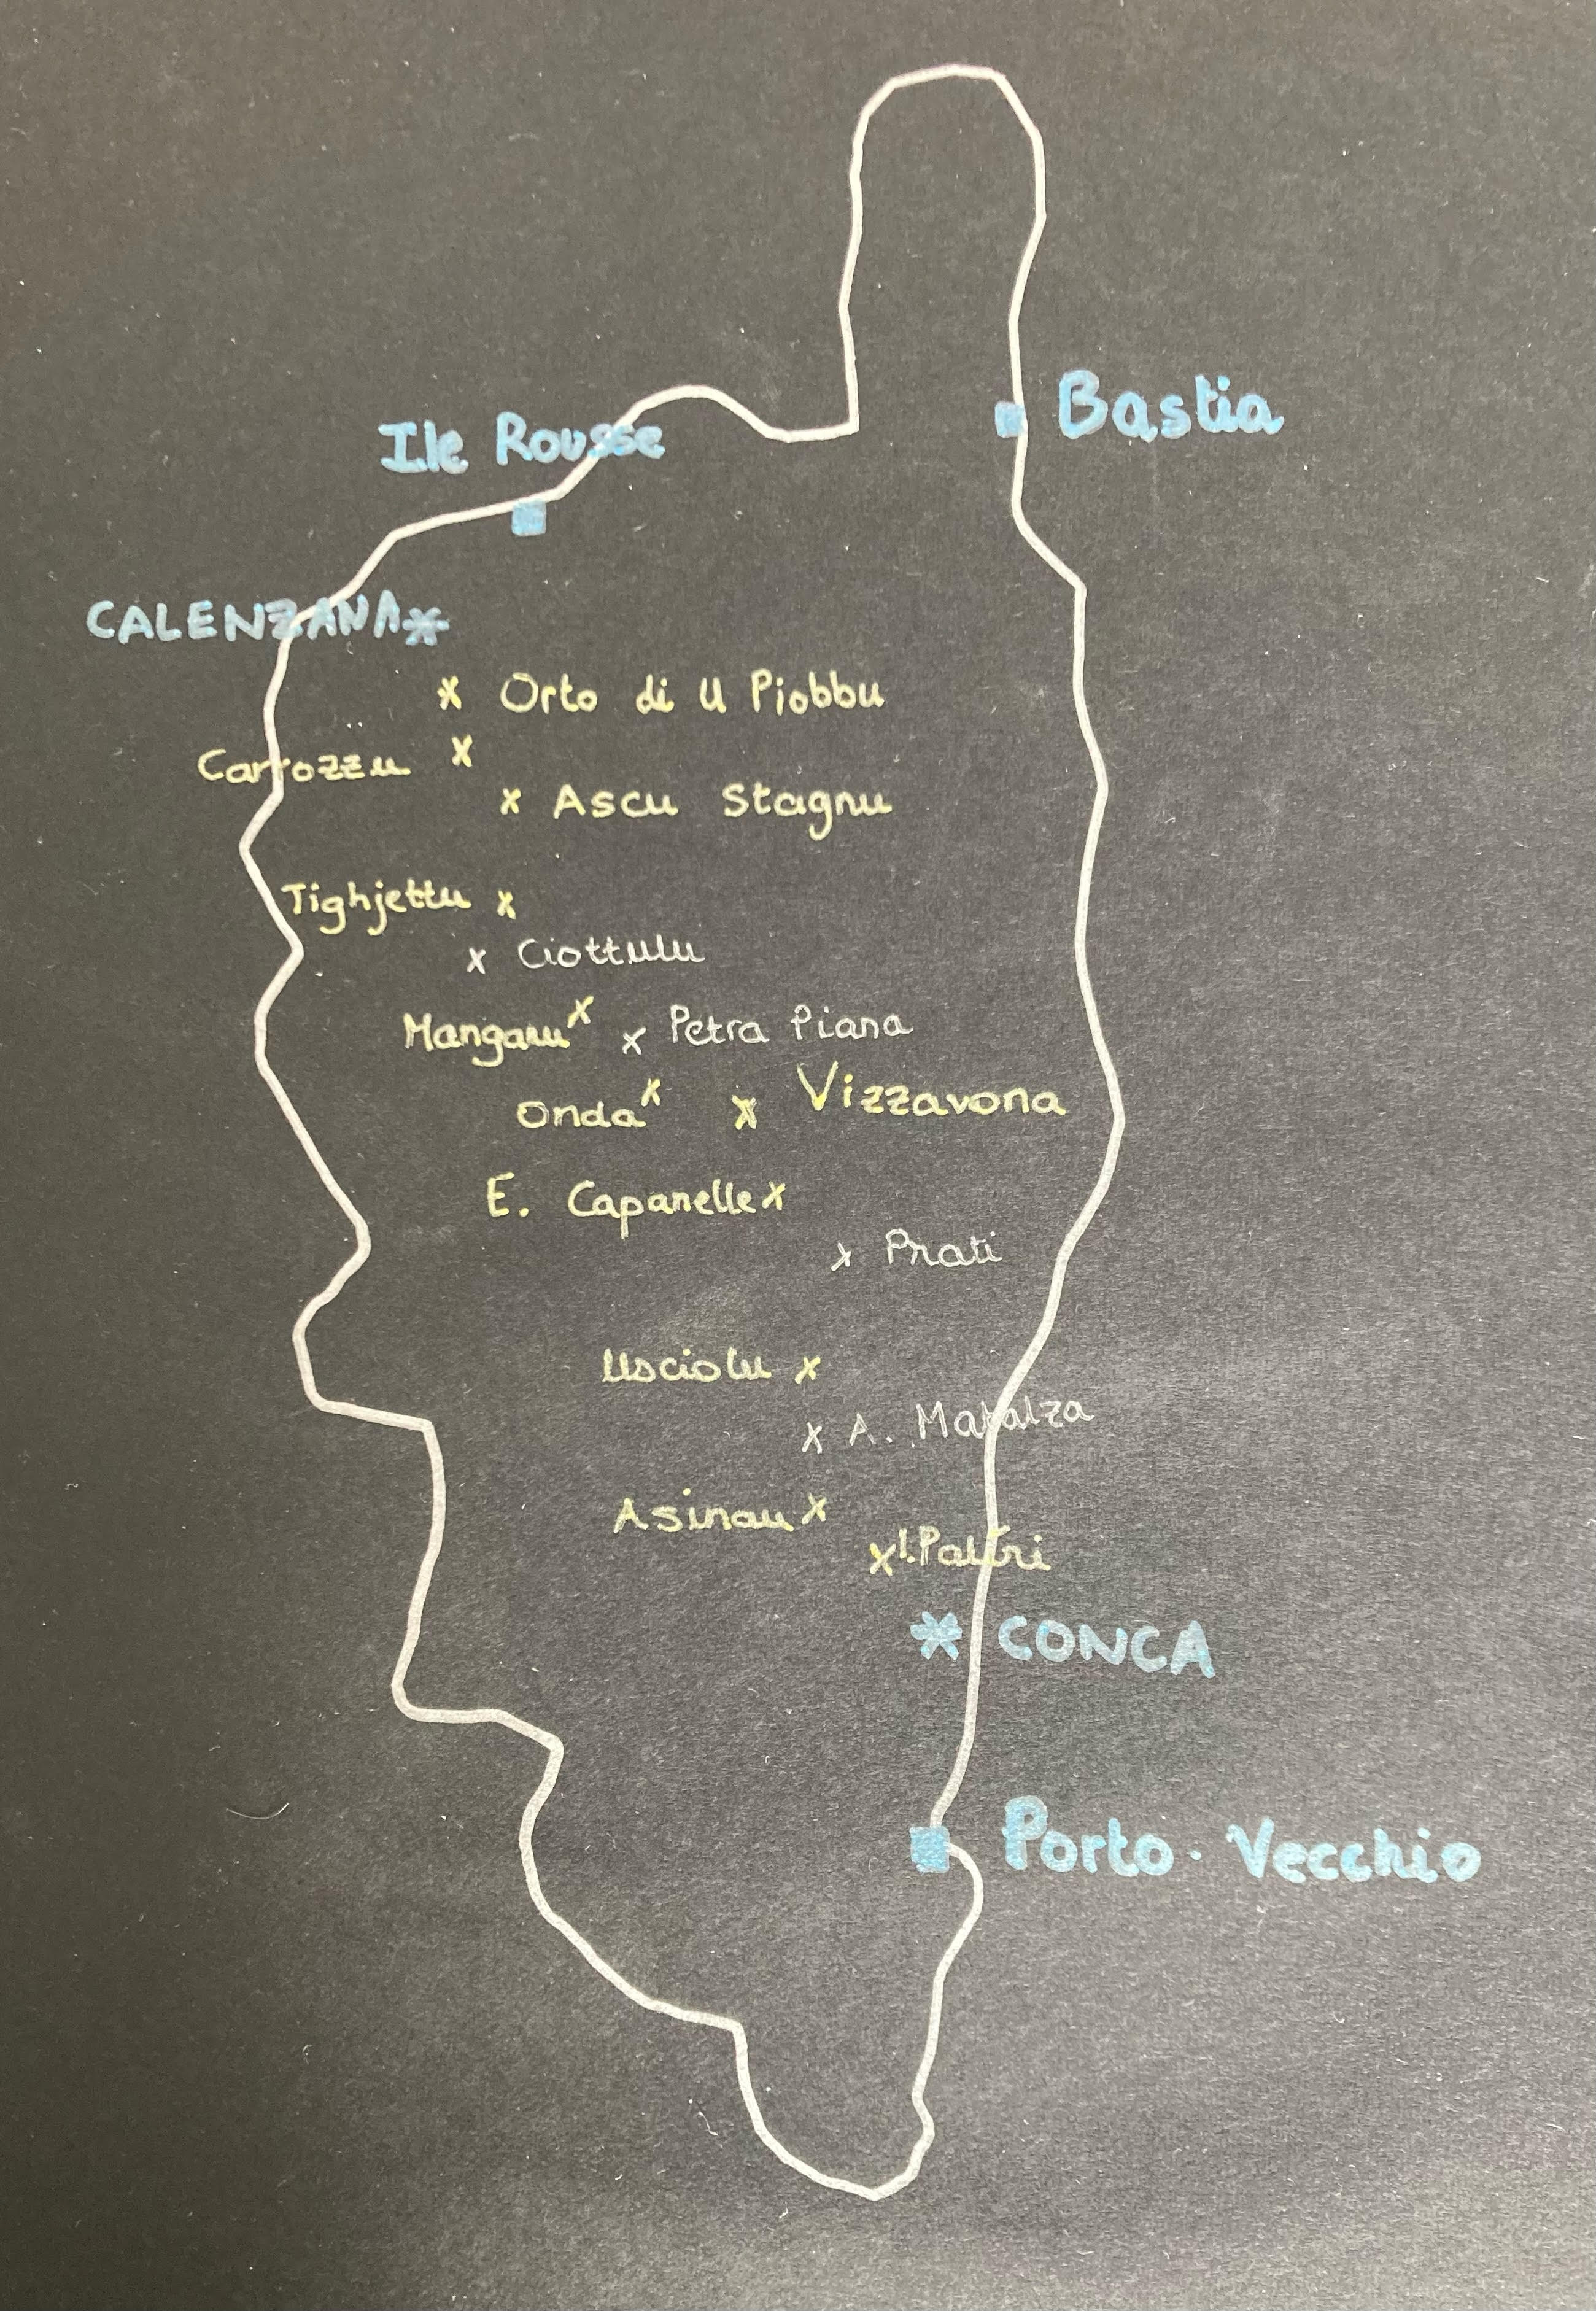 Bastia
Ile Rousse
CALENZANA
Orto di U Piobbu
Carrozzu
Ascu Stagnu
Tighjettu
Ciottulu
Manganu
Petra Piana
Onda
Vizzavona
E. Capanelle
Prati
Usciolu
A. Matalza
Asinau
I.Paliri
CONCA
Porto-Vecchio